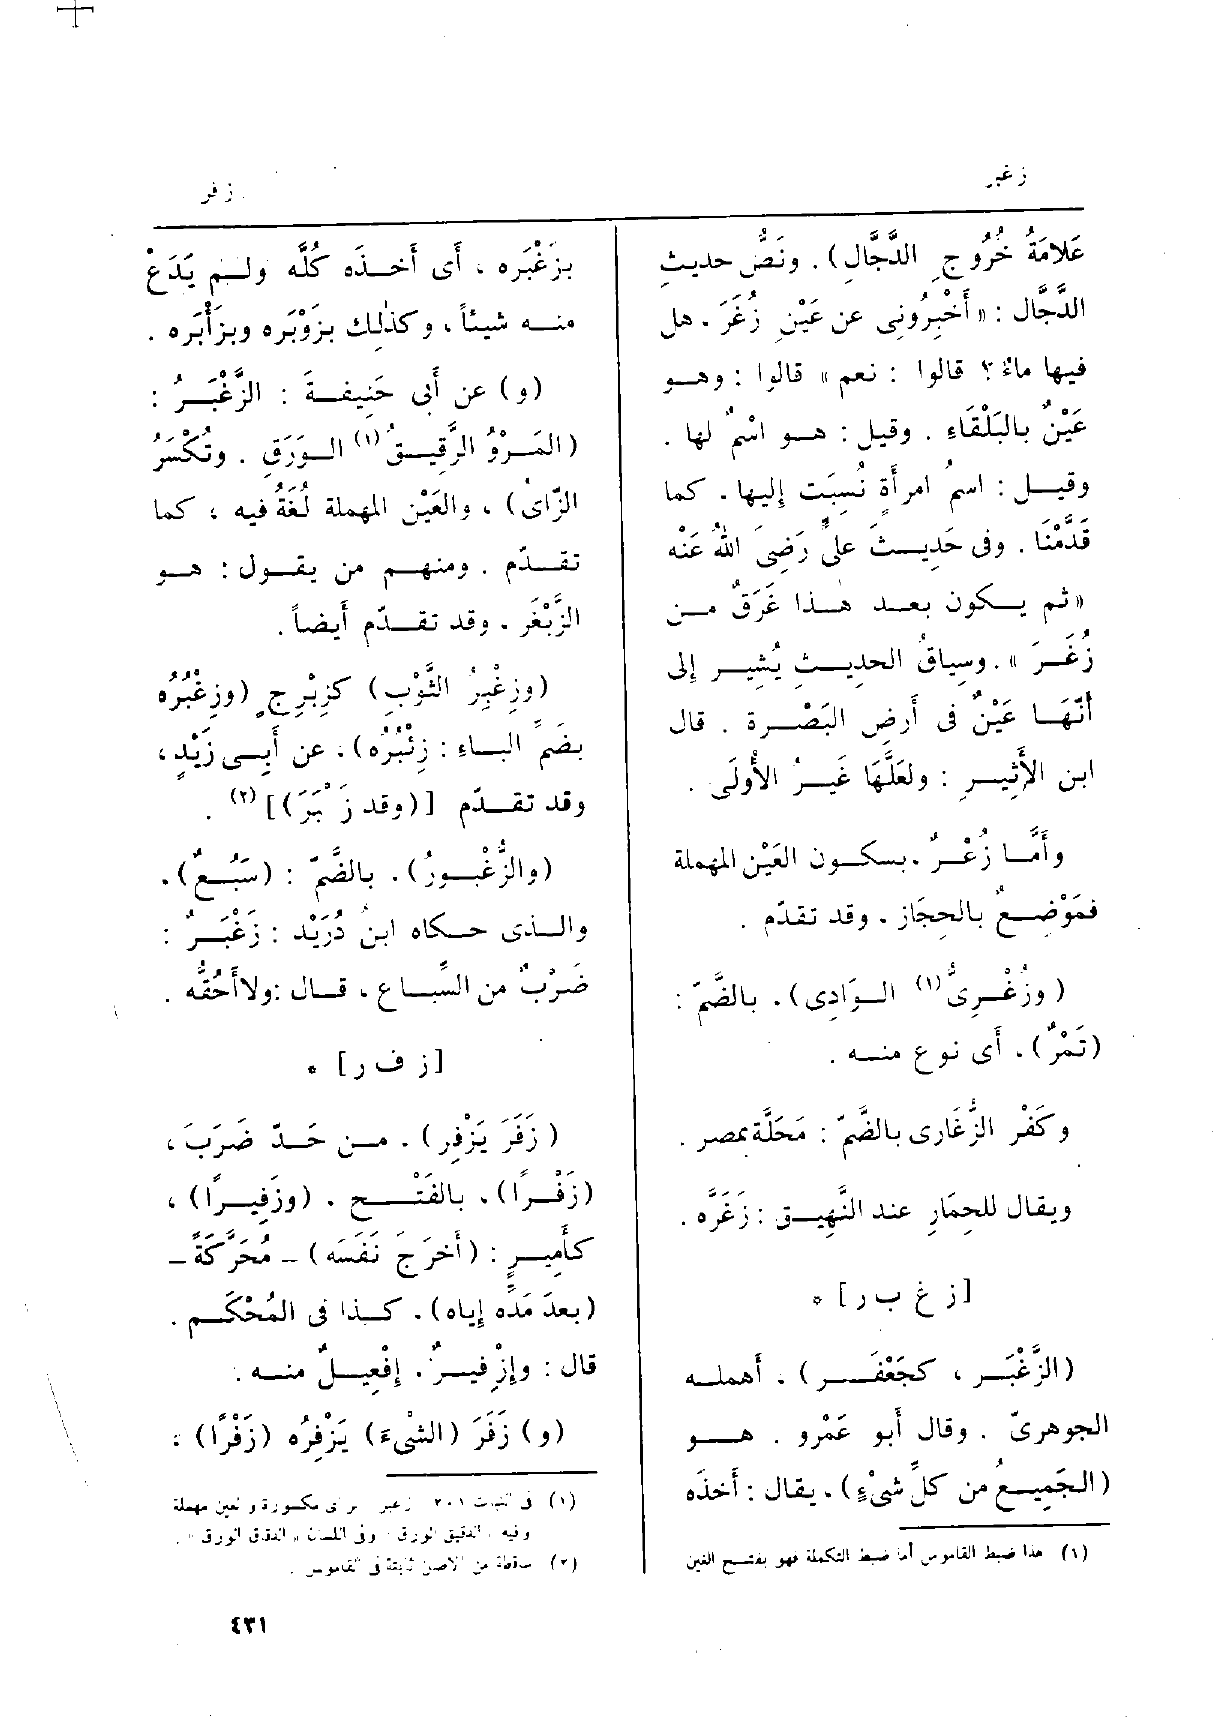 زغبر
زفر
عَلامَةُ خُرُوجِ الدَّجَّالِ). ونَصُّ حديثِ
الدَّجَّال : « أَخْبِرُونى عن عَيْنِ زُغَرَ ، هل
فيها ماءٌ ؟ قالوا : نعم » قالوا : وهو
عَيْنٌ بالبَلْقَاءِ . وقيل : هو اسْمٌ لها .
وقيل : اسمُ امرأَةٍ نُسِبَت إليها . كما
قَدَّمْنَا . وفى حَدِيثَ علىٍّ رَضِىَ اللهُ عَنْه
« ثم يكون بعد هذا غَرَقٌ من
زُغَرَ » . وسِياقُ الحديثِ يُشِير إلى
أَنّهَا عَيْنٌ فى أَرضِ البَصْرة . قال
ابن الأَثِيرِ : ولعَلَّهَا غَيرُ الأُولَى .
وأَمَّا زُغْرٌ . بسكون العَيْن المهملة
فمَوْضِعٌ بالحِجَاز ، وقد تقدّم .
( وزُغْرِىُّ(١) الوَادِى) . بالضَّمّ :
(تَمْرٌ) . أَى نوع منه .
وكَفْر الزُّغَارى بالضَّمّ : مَحَلَّة بمصر .
ويقال للحِمَارِ عند النَّهِيق : زَغَرَّه .
[ز غ ب ر] *
(الزَّغْبَر ، كجَعْفَر) . أهمله
الجوهرىّ . وقال أَبو عَمْرو . هو
(الجَمِيعُ من كلِّ شىْءٍ) . يقال : أَخذَه
(١) هذا ضبط القاموس أما ضبط التكملة فهو بفتح الغين
بزَغْبَره ، أَى أَخذَه كُلَّه ولم يَدَعْ
منه شيئاً ، وكذلِك بزَوْبَره وبزَأْبَره .
(و) عن أَبى حَنِيفةَ : الزَّغْبَرُ :
(المَرْوُ الرَّقِيقُ(١) الوَرَقِ . وتُكْسَرُ
الزّاىُ) ، والعَيْن المهملة لُغَةُ فيه ، كما
تقدّم . ومنهم من يقول : هو
الزَّبْغَر ، وقد تقدّم أَيضاً .
(وزِغْبِرُ الثَّوْبِ) كزِبْرِجٍ (وزِغْبُرُه
بضمِّ الباء : زِئْبُرُه) ، عن أَبِى زَيْدٍ ،
وقد تقدّم [(وقد زَغْبَرَ)](٢) .
(والزُّغْبورُ) . بالضَّمّ : (سَبُعٌ) .
والذى حكاه ابنُ دُرَيْد : زَغْبَرٌ :
ضَرْبٌ من السِّباع ، قال : ولا أَحُقُّه .
[ز ف ر] *
( زَفَرَ يَزْفِر) . من حَدّ ضَرَبَ ،
(زَفْرًا) . بالفَتْح . (وزَفِيرًا) ،
كأَمِيرٍ : (أَخرَجَ نَفَسَه) – مُحَرَّكَةً –
(بعدَ مَدِّه إِياه) . كذا فى المُحْكَم .
قال : وإِزْفِيرٌ . إِفْعِيلٌ منه .
(و) زَفَرَ (الشىْءَ) يَزْفِرُه (زَفْرًا) :
(١) فى النبات ٢٠١ زعبر بزاى مكسورة وعين مهملة
وفيه «الدقيق الورق» وفى اللسان « الدقاق الورق » .
(٢) ساقطة من الأصل ثابتة فى القاموس .
٤٣١